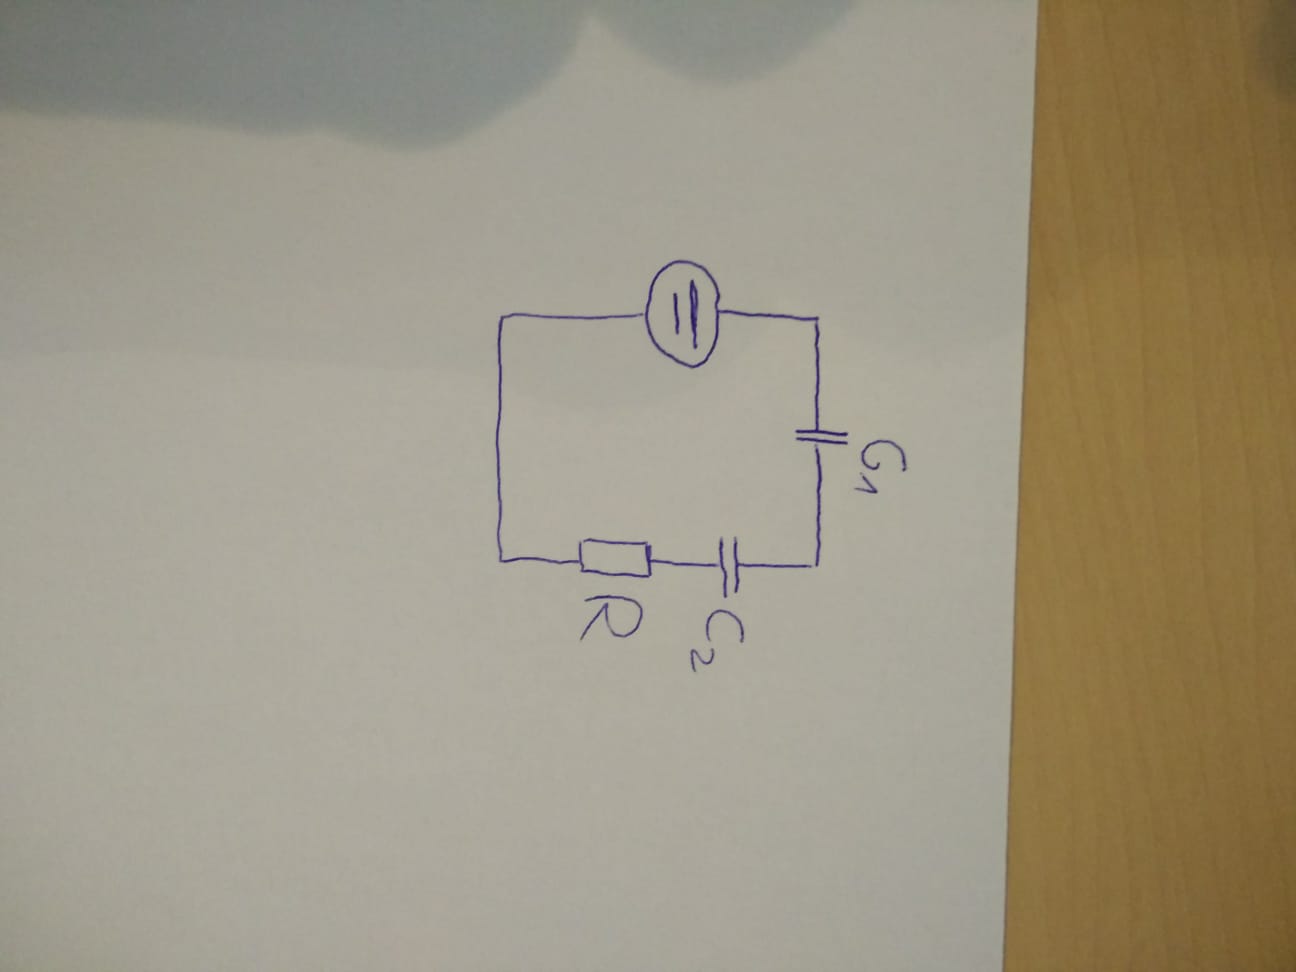 C1
C2
R